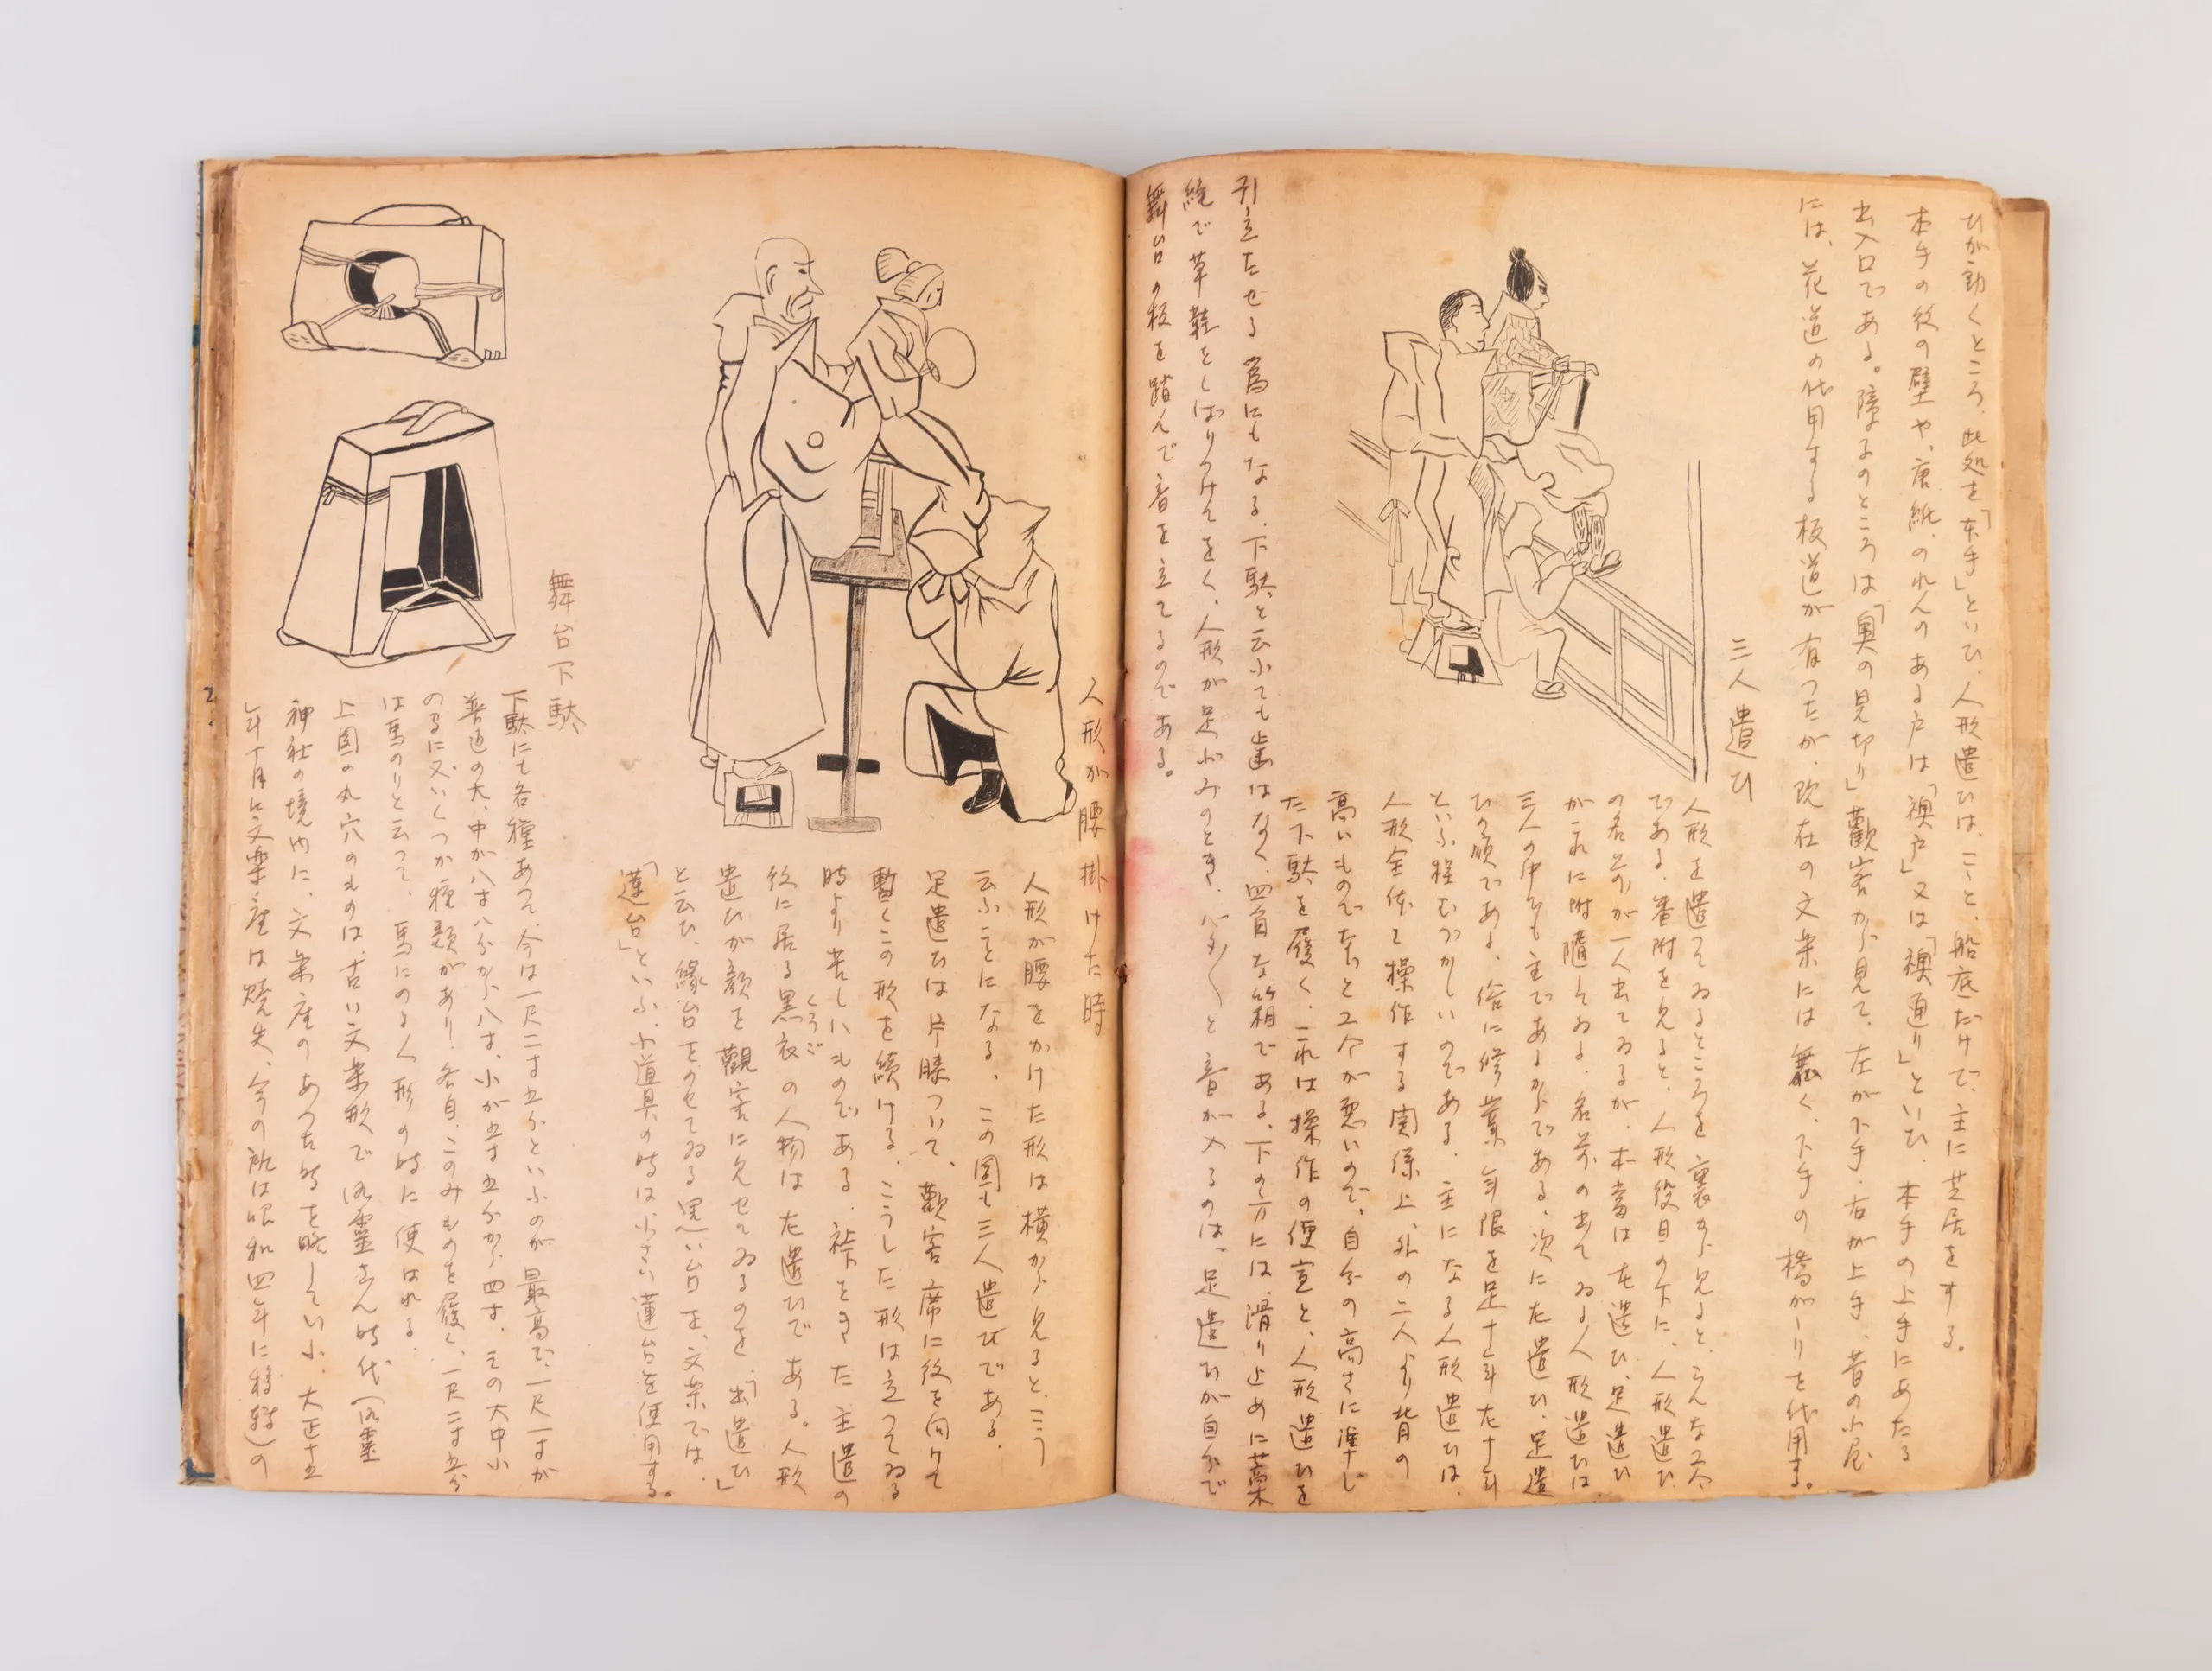 ひが動くところ、此処を「本手」といひ、人形遣ひは、こゝと、船底だけで、主に芝居をする。
本手の後の壁や、唐紙、のれんのある戸は「襖戸」又は「襖通り」といひ、本手の上手にあたる
出入口である。障子のところは「奥の見切り」観客から見て、左が下手、右が上手、昔の小屋
には、花道の代用する板道が有つたが、現在の文楽には無く、下手の橋がゝりを代用する。
三人遣ひ
人形を遣つてゐるところを裏から見ると、こんな工合
である。番附を見ると、人形役目の下に、人形遣ひ
の名前が一人出てゐるが、本当は左遣ひ、足遣ひ
がこれに附随してゐる。名前の出てゐる人形遣ひは
三人の中でも主であるからである。次に左遣ひ、足遣
ひの順である。俗に修業年限を足十年左十年
といふ程むづかしいのである。主になる人形遣ひは、
人形全体を操作する関係上、外の二人より背の
高いものでないと工合が悪いので、自分の高さに準じ
た下駄を履く、これは操作の便宜と、人形遣ひを
引立たせる為にもなる、下駄と云ふても歯はなく、四角な箱である、下の方には、滑り止めに藁
縄で草鞋をしばりつけてをく、人形が足ぶみのとき、バタ〳〵と音が入るのは、足遣ひが自分で
舞台の板を踏んで音を立てるのである。
人形が腰掛けた時
人形が腰をかけた形は横から見ると、こう
云ふことになる、この図も三人遣ひである。
足遣ひは片膝ついて、観客席に後を向けて
暫くこの形を続ける、こうした形は立つてゐる
時より苦しいものである、裃をきた主遣の
後に居る黒衣の人物は左遣ひである。人形
くろご
遣ひが顔を観客に見せてゐるのを、「出遣ひ」
と云ひ、縁台をのせてゐる黒い台を、文楽では、
「蓮台」といふ、小道具の時は、小さい蓮台を使用する。
舞台下駄
下駄にも各種あつて、今は一尺二寸五分といふのが最高で、一尺一寸が
普通の大、中が八寸八分から八寸、小が五寸五分から四寸、この大中小
のるに又、いくつか種類があり、各自、このみものを履く、一尺二寸五分
は馬のりと云つて、馬にのる人形の時に使はれる。
上図の丸穴のものは、古い文楽形で御霊さん時代（御霊
神社の境内に、文楽座のあつた時を略していふ、大正十五
年十一月に文楽座は焼失、今の所は昭和四年に移転）の